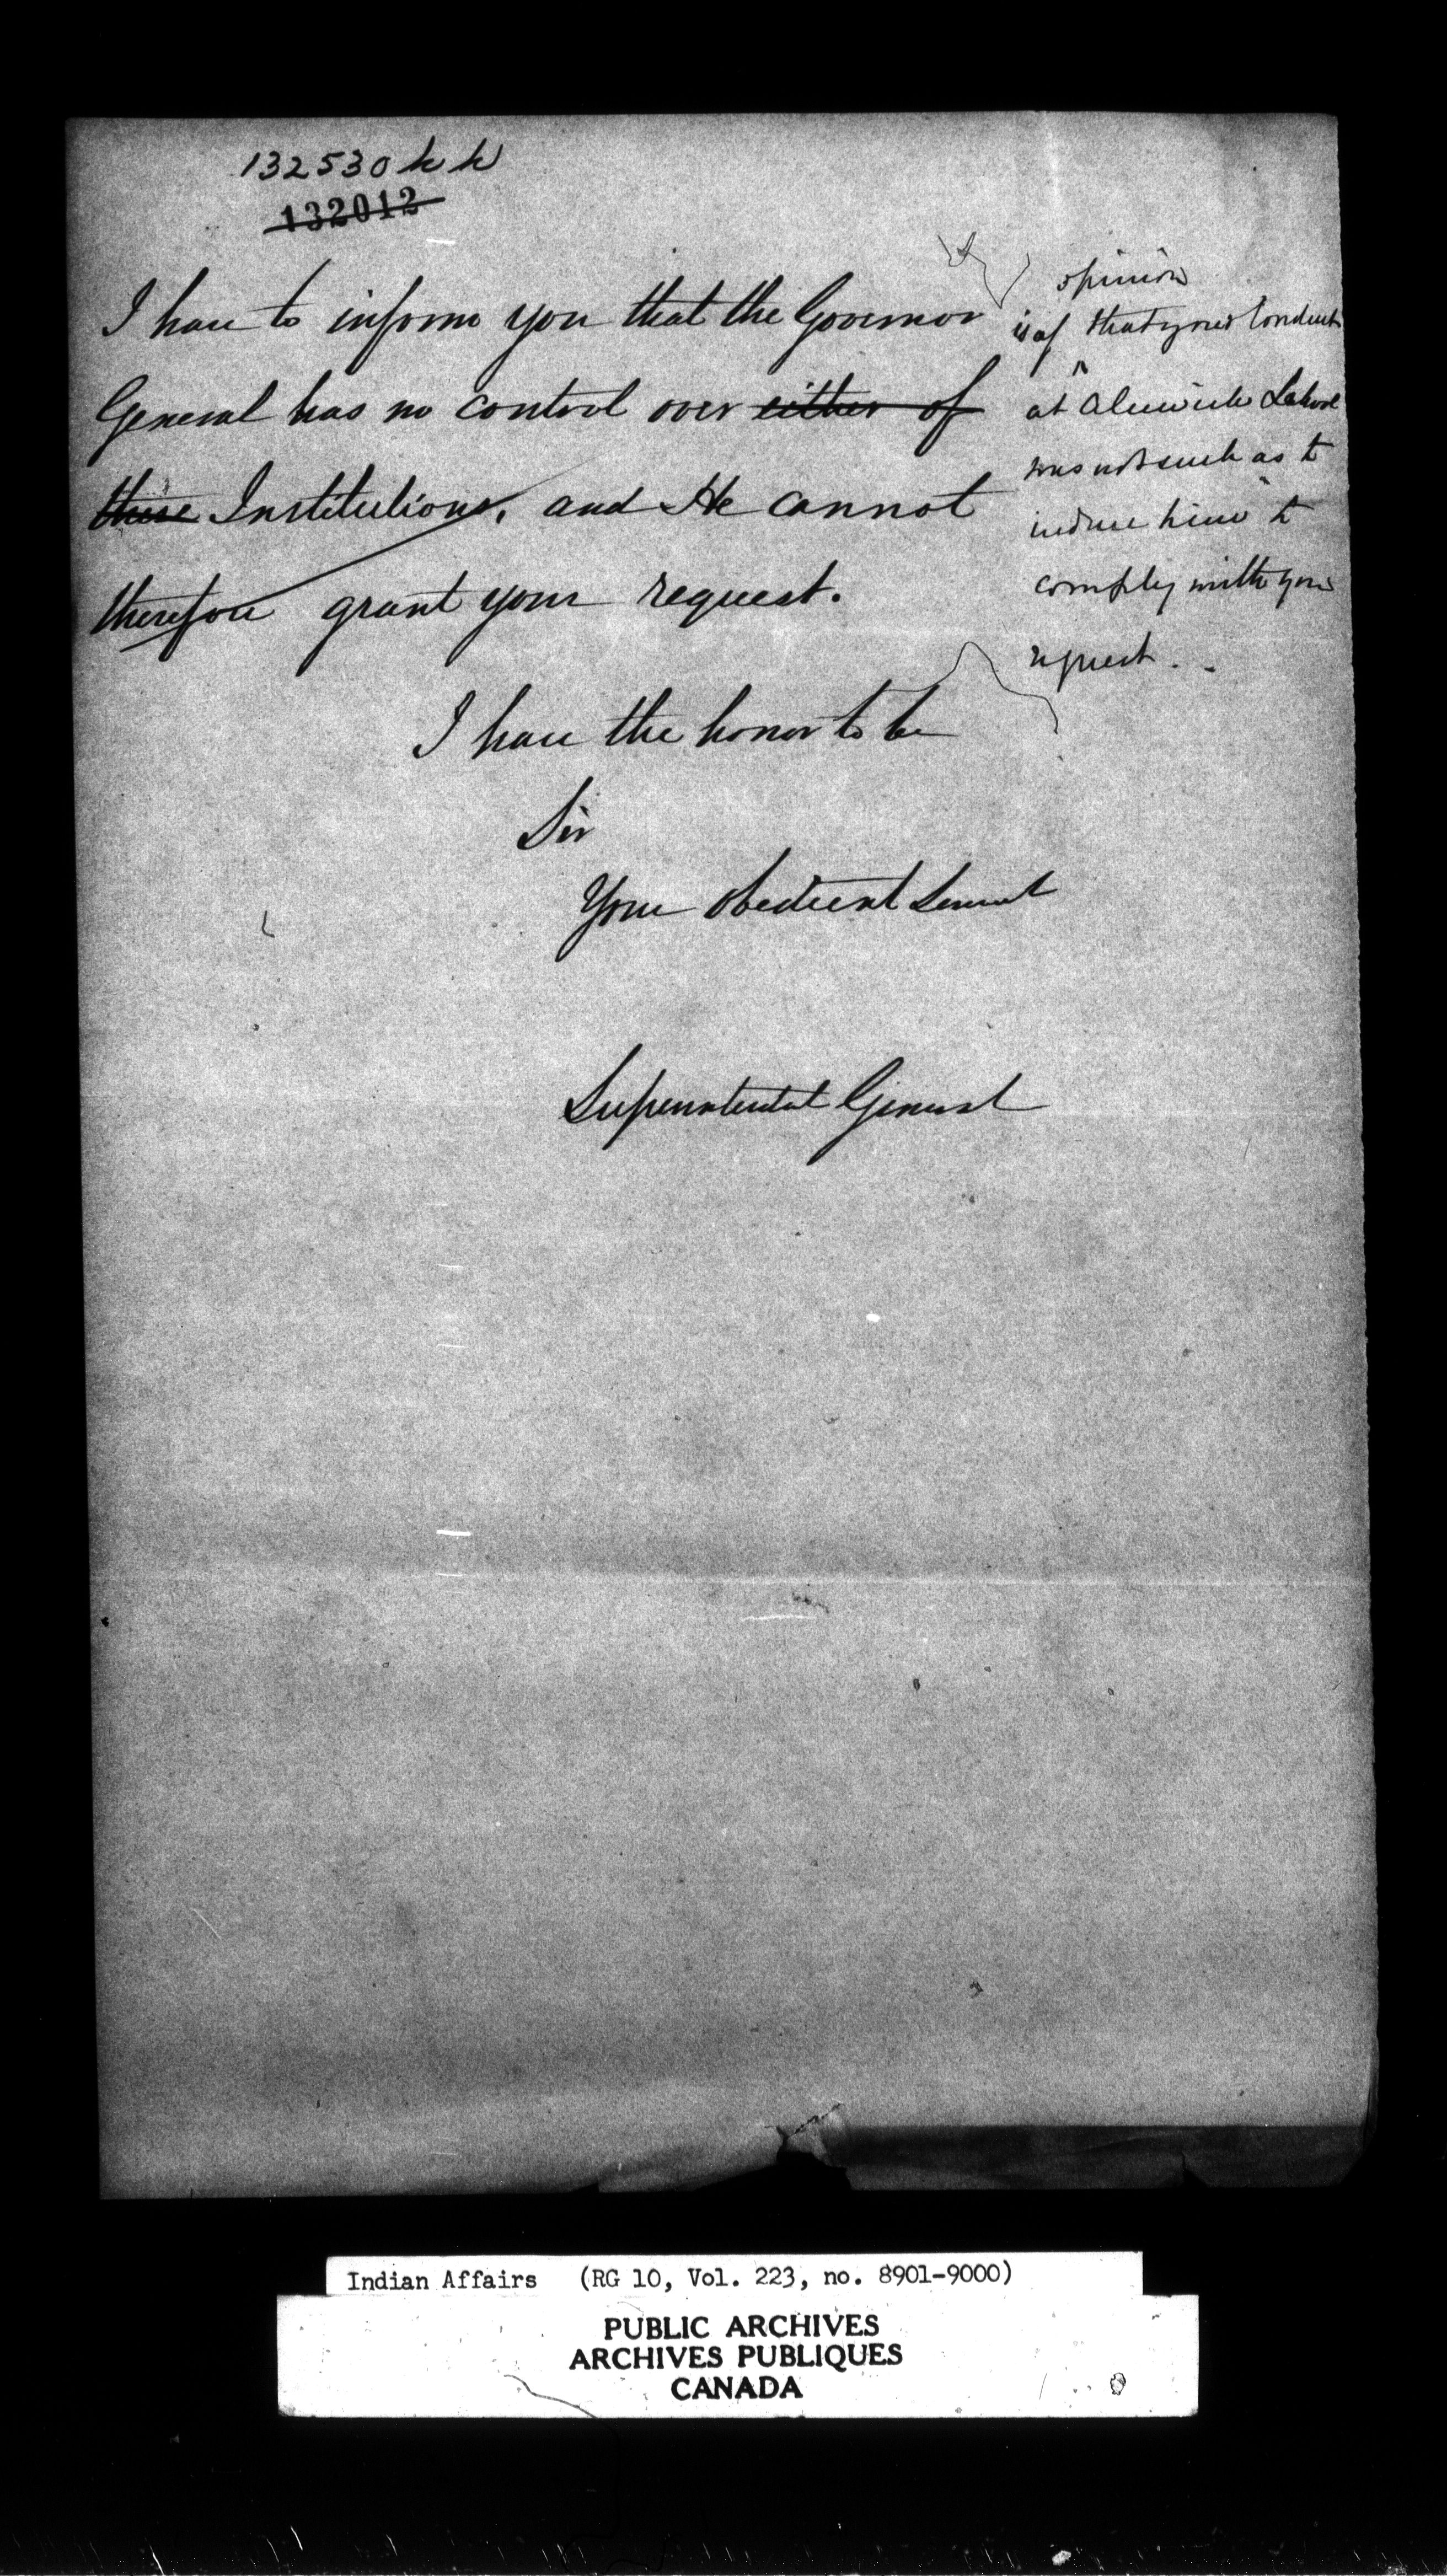 132530 kk
132012
I have to inform you that the Governor
General has no control over either of
these Institutions, and He cannot
therefore grant your request.
opinion
is of that your Conduct
at Alnwick School
was not such as to
induce him to
comply with your
request.
I have the honor to be
Sir
Your obedient Servant
Superintendent General
Indian Affairs (RG 10, Vol. 223, no. 8901-9000)
PUBLIC ARCHIVES
ARCHIVES PUBLIQUES
CANADA